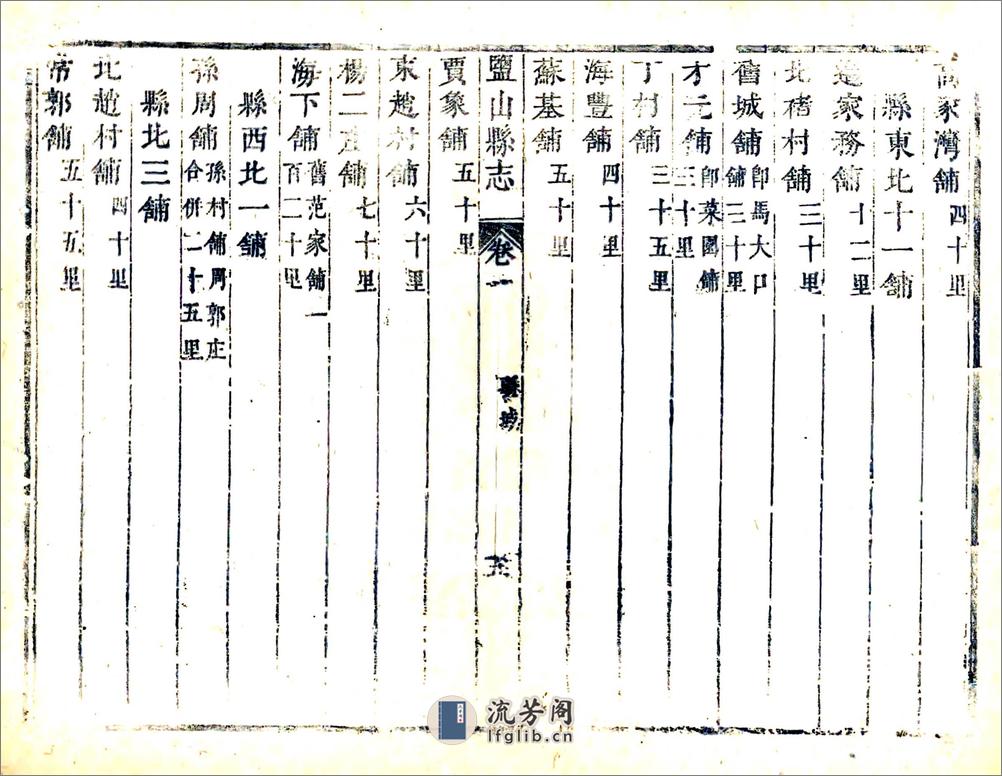 高家灣舖四十里
縣東北十一舖
家務舖十二里
北褚村舖三十里
舊城舖即馬大口舖三十里
才元舖即菜園舖三十里
丁村舖三十五里
海豐舖四十里
蘇基舖五十里
鹽山縣志 卷一
賈象舖五十里
東趙村舖六十里
楊二庄舖七十里
海下舖舊范家舖一百二十里
縣西北一舖
孫周舖孫村舖周郭庄合併二十五里
縣北三舖
北趙村舖四十里
常郭舖五十五里
流芳阁
lfglib.cn